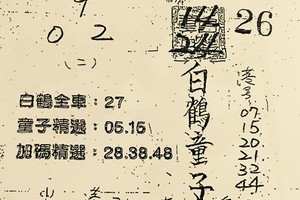 9
26
0 2
(二)
白鶴童子
港号
07
15
20
21
32
44
白鶴全車：27
童子精選：05.15
加碼精選：28.38.48